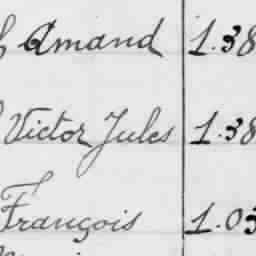 Amand 1.38
Victor Jules 1.38
François 1.03